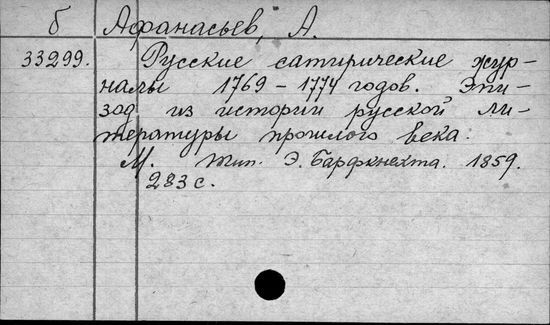 б Афанасьев, А.
33299. Русские сатирические жур-
налы 1769 - 1774 годов. Эпи-
зод из истории русской ли-
тературы прошлого века.
М. Тип. Э. Барфкнехта. 1859.
283 с.